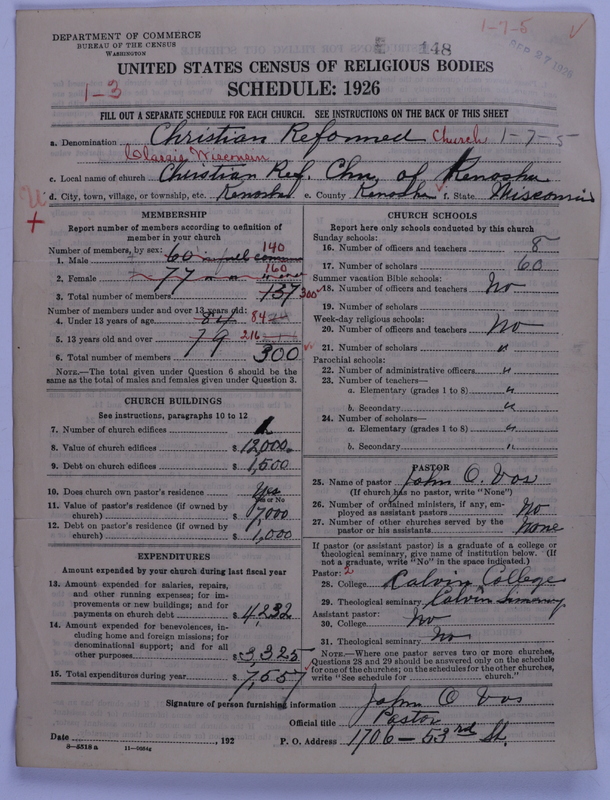 DEPARTMENT OF COMMERCE
BUREAU OF THE CENSUS
WASHINGTON
148
1-7-5
SEP 27 1928
UNITED STATES CENSUS OF RELIGIOUS BODIES
1-3
SCHEDULE: 1926
FILL OUT A SEPARATE SCHEDULE FOR EACH CHURCH. SEE INSTRUCTIONS ON THE BACK OF THIS SHEET
a. Denomination Christian Reformed Church 1-7-5
Classis Wisconsin
c. Local name of church Christian Ref. Chu, of Kenosha
d. City, town, village, or township, etc. Kenosha e. County Kenosha f. State Wisconsin
MEMBERSHIP
Report number of members according to definition of member in your church
Number of members, by sex:
1. Male 60 in full commun 140
2. Female 77 " " 160
3. Total number of members 137 300
Number of members under and over 13 years old:
4. Under 13 years of age 84 84
5. 13 years old and over 79 216
6. Total number of members 300
NOTE.—The total given under Question 6 should be the same as the total of males and females given under Question 3.
CHURCH BUILDINGS
See instructions, paragraphs 10 to 12
7. Number of church edifices 1
8. Value of church edifices $ 12,000.
9. Debt on church edifices $ 1,500
10. Does church own pastor's residence Yes
Yes or No
11. Value of pastor's residence (if owned by church) $ 7,000
12. Debt on pastor's residence (if owned by church) $ 1,000
EXPENDITURES
Amount expended by your church during last fiscal year
13. Amount expended for salaries, repairs, and other running expenses; for improvements or new buildings; and for payments on church debt $ 4,232
14. Amount expended for benevolences, including home and foreign missions; for denominational support; and for all other purposes $ 3,325
15. Total expenditures during year $ 7,557
CHURCH SCHOOLS
Report here only schools conducted by this church
Sunday schools:
16. Number of officers and teachers 8
17. Number of scholars 60
Summer vacation Bible schools:
18. Number of officers and teachers No
19. Number of scholars
Week-day religious schools:
20. Number of officers and teachers No
21. Number of scholars "
Parochial schools:
22. Number of administrative officers "
23. Number of teachers—
a. Elementary (grades 1 to 8) "
b. Secondary "
24. Number of scholars—
a. Elementary (grades 1 to 8) "
b. Secondary "
PASTOR
25. Name of pastor John O. Vos
(If church has no pastor, write "None")
26. Number of ordained ministers, if any, employed as assistant pastors No
27. Number of other churches served by the pastor or his assistants None
If pastor (or assistant pastor) is a graduate of a college or theological seminary, give name of institution below. (If not a graduate, write "No" in the space indicated.)
Pastor: 2
28. College Calvin College
29. Theological seminary Calvin Seminary
Assistant pastor:
30. College No
31. Theological seminary No
NOTE.—Where one pastor serves two or more churches, Questions 28 and 29 should be answered only on the schedule for one of the churches; on the schedules for the other churches, write "See schedule for church."
Signature of person furnishing information John O Vos
Official title Pastor
Date , 192 P. O. Address 1706 – 53rd St.
8—5518 a 11—9554g